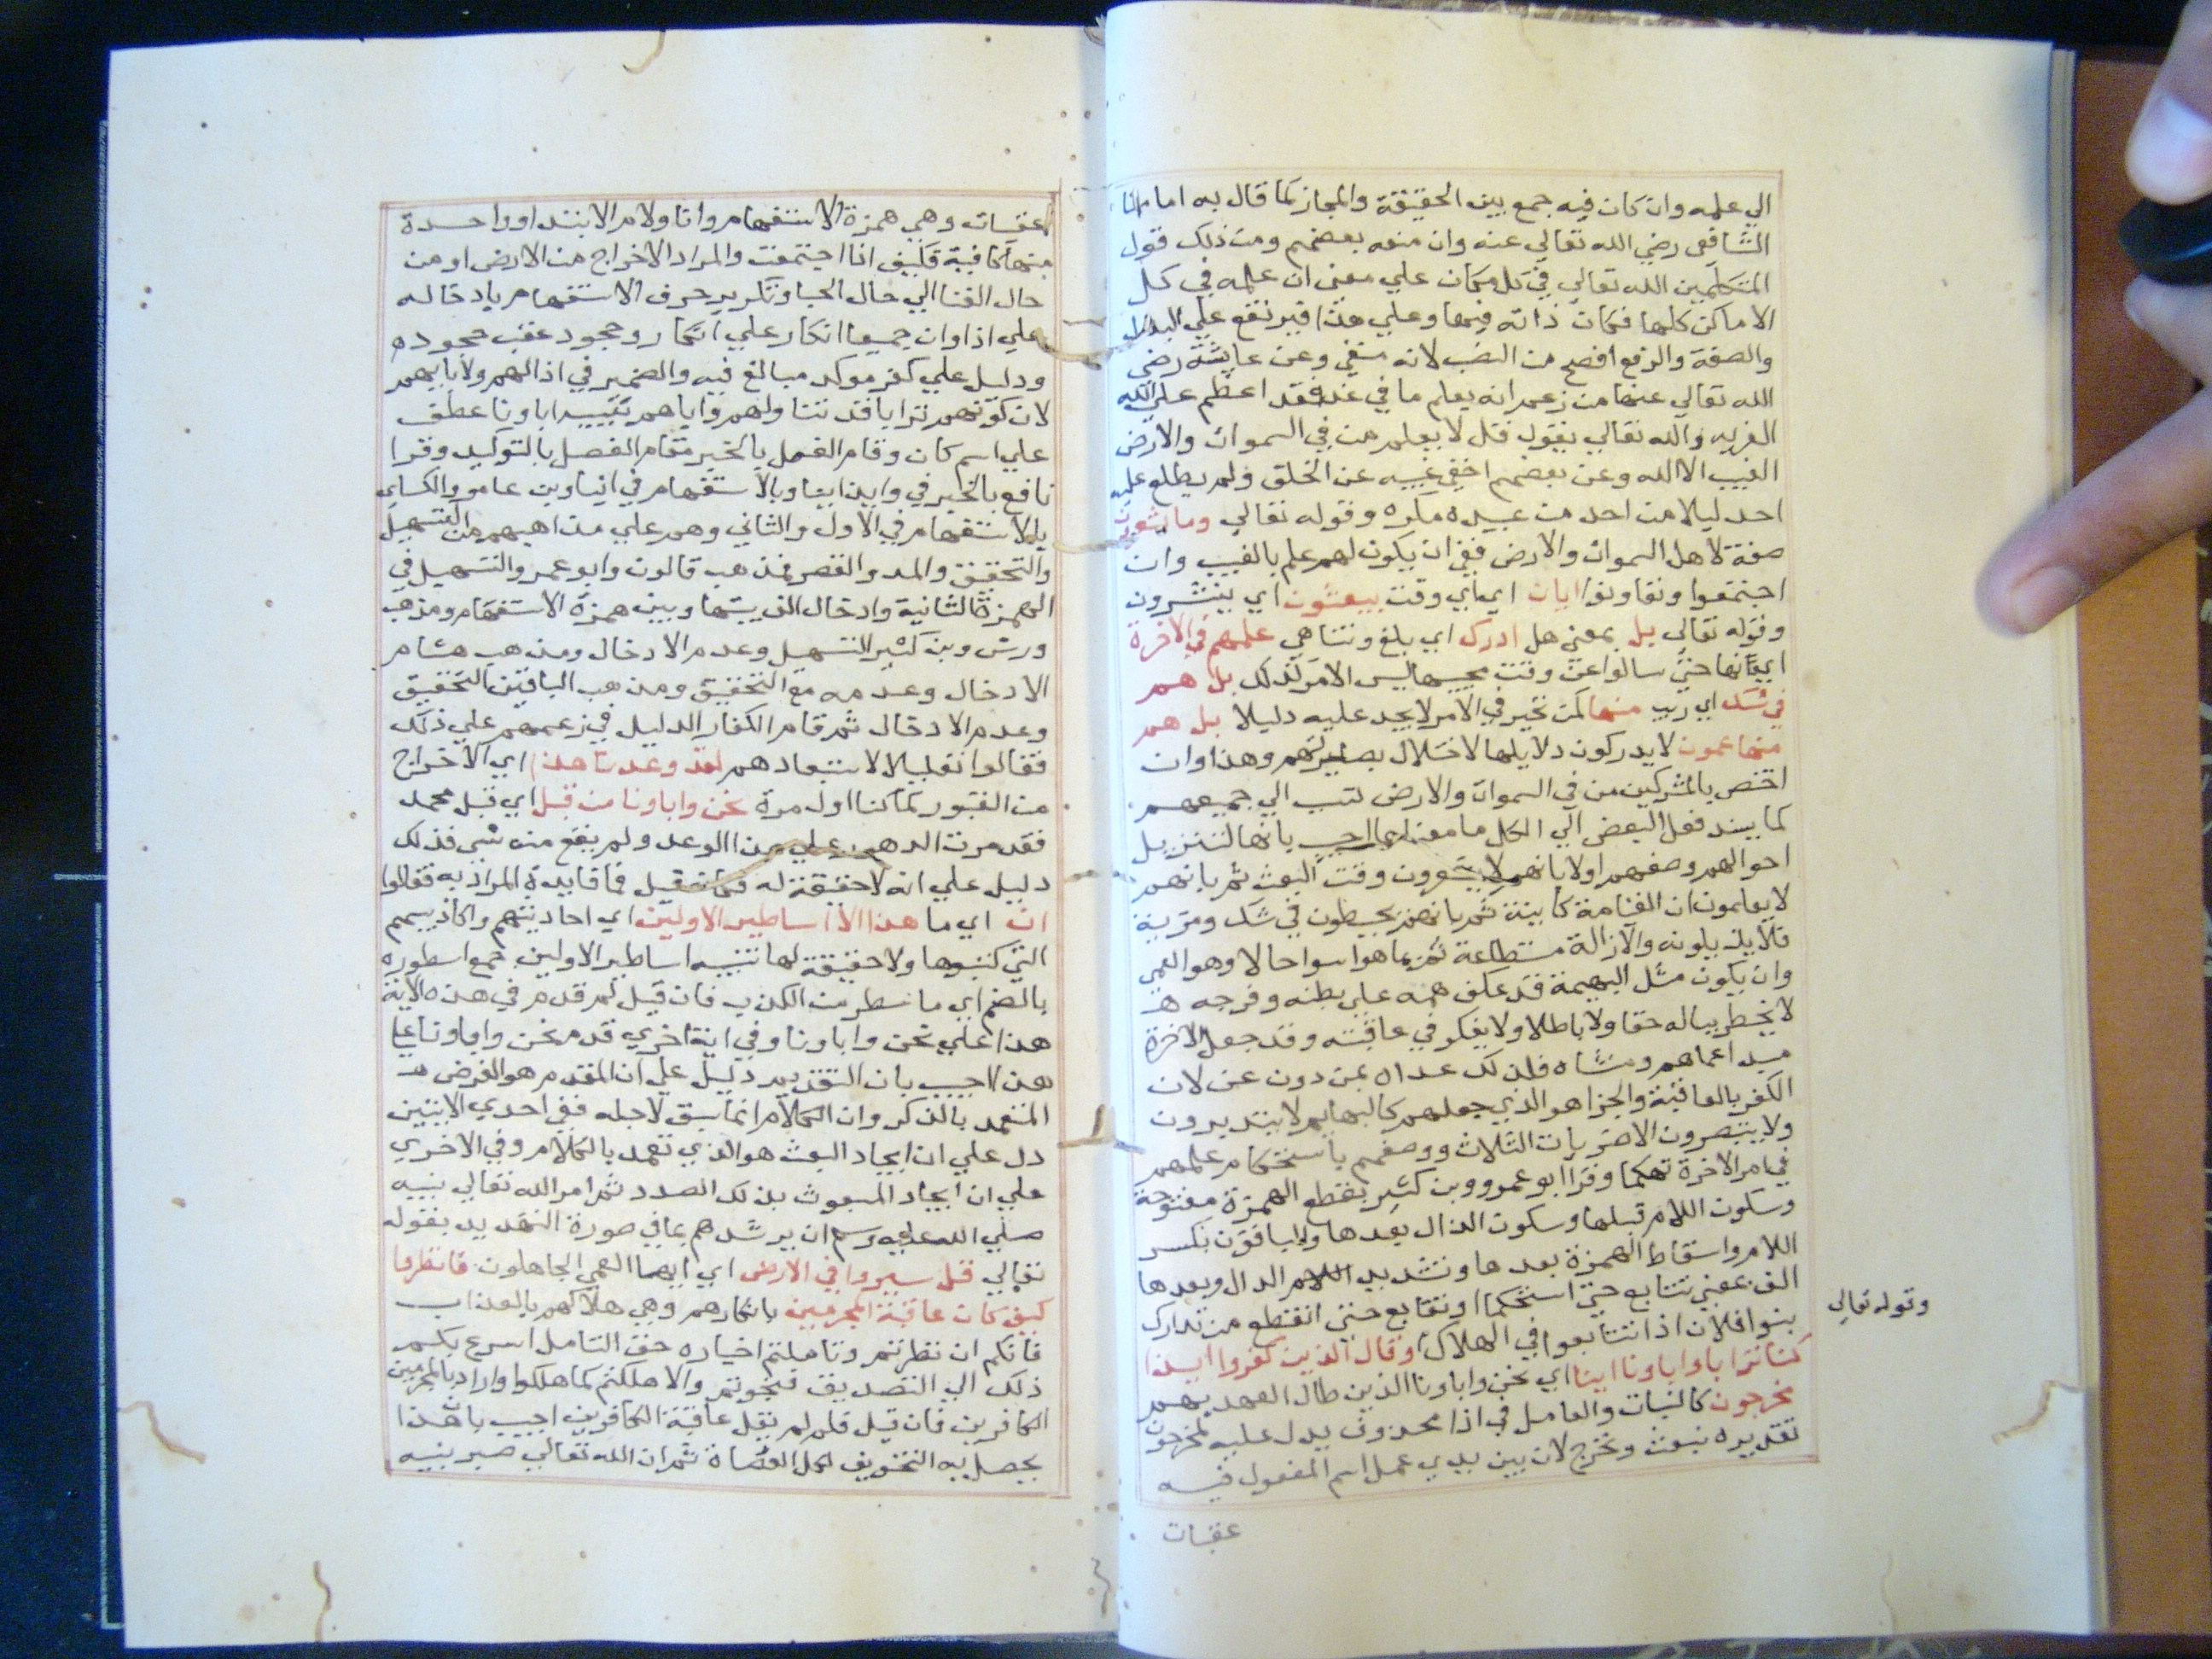 الي علمه وان كان فيه جمع بين الحقيقة والمجاز كما قال به امامنا
الشافعي رضي الله تعالي عنه وان منعه بعضهم ومن ذلك قول
المتكلمين الله تعالي في كل مكان علي معني ان علمه في كل
الاماكن كلها فكان ذاته فيها وعلي هذا فيرتفع علي البدل
والصفة والرفع افصح من النصب لانه منفي وعن عايشة رضي
الله تعالي عنها من زعم انه يعلم ما في غد فقد اعظم علي الله
الفريه والله تعالي يقول قل لا يعلم من في السموات والارض
الغيب الا الله وعن بعضهم اخفي غيبه عن الخلق ولم يطلع عليه
احد ليلا من احد من عبيده مكره وقوله تعالي وما يشعرون
صفة لاهل السموات والارض ففي ان يكون لهم علم بالغيب وان
اجتمعوا وتعاونوا ايان اي اي وقت يبعثون اي ينشرون
وقوله تعالي بل بمعني هل ادرك اي بلغ وتناهي علمهم في الاخرة
اي بها حتي سالوا عن وقت مجيها ليس الامر كذلك بل هم
في شك اي ريب منها كمن تحير في الامر لا يجد عليه دليلا بل هم
منها عمون لا يدركون دلايلها لاختلال بصايرهم وهذا وان
اختص بالمشركين من في السموات والارض نسب الي جميعهم
كما يسند فعل البعض الي الكل ما معني اجيب بانها لتنزيل
احوالهم وصفهم اولا بانهم لا يشعرون وقت البعث ثم بانهم
لا يعلمون ان القيامة كاينة ثم بانهم يخبطون في شك ومرية
فلا يزيلونه والازالة مستطاعة ثم بما هو اسوا حالا وهو العمي
وان يكون مثل البهيمة قد عكف همه علي بطنه وفرجه
لا يخطر بباله حقا ولا باطلا ولا يفكر في عاقبته وقد جعل الاخرة
مبدا عماهم ومنشاه فلذلك عداه بمن دون عن لان
الكفر بالعاقبة والجزا هو الذي جعلهم كالبهايم لا يتدبرون
ولا يتبصرون الاضربات الثلاث ووصفهم باستحكام علمهم
في امر الاخرة تهكما وقرا ابو عمرو وبن كثير بقطع الهمزة مفتوحة
وسكون اللام قبلها وسكون الدال بعدها والباقون بكسر
اللام واسقاط الهمزة بعدها وتشديد الدال وبعدها
الف بمعني تتابع حتي استحكم او تتابع حتي انقطع من تدارك
بنوا فلان اذا تتابعوا في الهلاك وقال الذين كفروا ايذا
وقوله تعالي
كنا ترابا واباونا اينا اي نحن واباونا الذين طال العهد بهم
مخرجون كالنبات والعامل في اذا محذوف يدل عليه لمخرجون
تقديره نبعث ونخرج لان بين يدي عمل اسم المفعول فيه
عقبات
عقبات وهي همزة الاستفهام وانا ولام الابتدا وواحدة
منها كافية فكيف اذا اجتمعت والمراد الاخراج من الارض او من
حال الفنا الي حال الحيا وتكرير حرف الاستفهام بادخاله
علي اذا وان جميعا انكار علي انكار وجحود عقب جحوده
ودليل علي كفر موكد مبالغ فيه والضمير في انا لهم ولابايهم
لان كونهم ترابا قد تناولهم واباهم تنبيه اباونا عطف
علي اسم كان وقام الفصل بالخبر مقام الفصل بالتوكيد وقرا
نافع بالخبر في وبالاستفهام في اينا وبن عامر والكساي
بالاستفهام في الاول والثاني وهم علي مذاهبهم من التسهيل
والتحقيق والمد والقصر فمذهب قالون وابو عمر والتسهيل في
الهمزة الثانية وادخال الف بينها وبين همزة الاستفهام ومذهب
ورش وبن كثير التسهيل وعدم الادخال ومذهب هشام
الادخال وعدمه مع التحقيق ومذهب الباقين التحقيق
وعدم الادخال ثم اقام الكفار الدليل في زعمهم علي ذلك
فقالوا تعليلا لاستبعادهم لقد وعدنا هذا اي الاخراج
من القبور كما كنا اول مرة نحن واباونا من قبل اي قبل محمد
فقد مرت الدهور علي هذا الوعد ولم يقع منه شي فذلك
دليل علي انه لا حقيقة له فكانه قيل فما فايدة المراد به فقالوا
ان اي ما هذا الا اساطير الاولين اي احاديثهم واكاذيبهم
التي كتبوها ولا حقيقة لها تنبيه اساطير الاولين جمع اسطوره
بالضم اي ما سطر من الكذب فان قيل لم قدم في هذه الاية
هذا علي نحن واباونا وفي اية اخري قدم نحن واباونا علي
هذا اجيب بان التقديم دليل علي ان المقدم هو الغرض
المتعمد بالذكر وان الكلام انما سيق لاجله ففي احدي الايتين
دل علي ان ايجاد البعث هو الذي تعمد بالكلام وفي الاخري
علي ان ايجاد المبعوث بذلك الصدد ثم امر الله تعالي نبيه
صلي الله عليه وسلم ان يرشدهم بما في صورة التهديد بقوله
تعالي قل سيروا في الارض اي ايها العمي الجاهلون فانظروا
كيف كان عاقبة المجرمين بانكارهم وهي هلاكهم بالعذاب
فانكم ان نظرتم وتاملتم اخباره حق التامل اسرع بكم
ذلك الي التصديق فنجوتم والا هلكتم كما هلكوا واراد بالمجرمين
الكافرين فان قيل فلم لم يقل عاقبة الكافرين اجيب بان هذا
يحصل به التخويف لكل العصاة ثم ان الله تعالي صبر نبيه